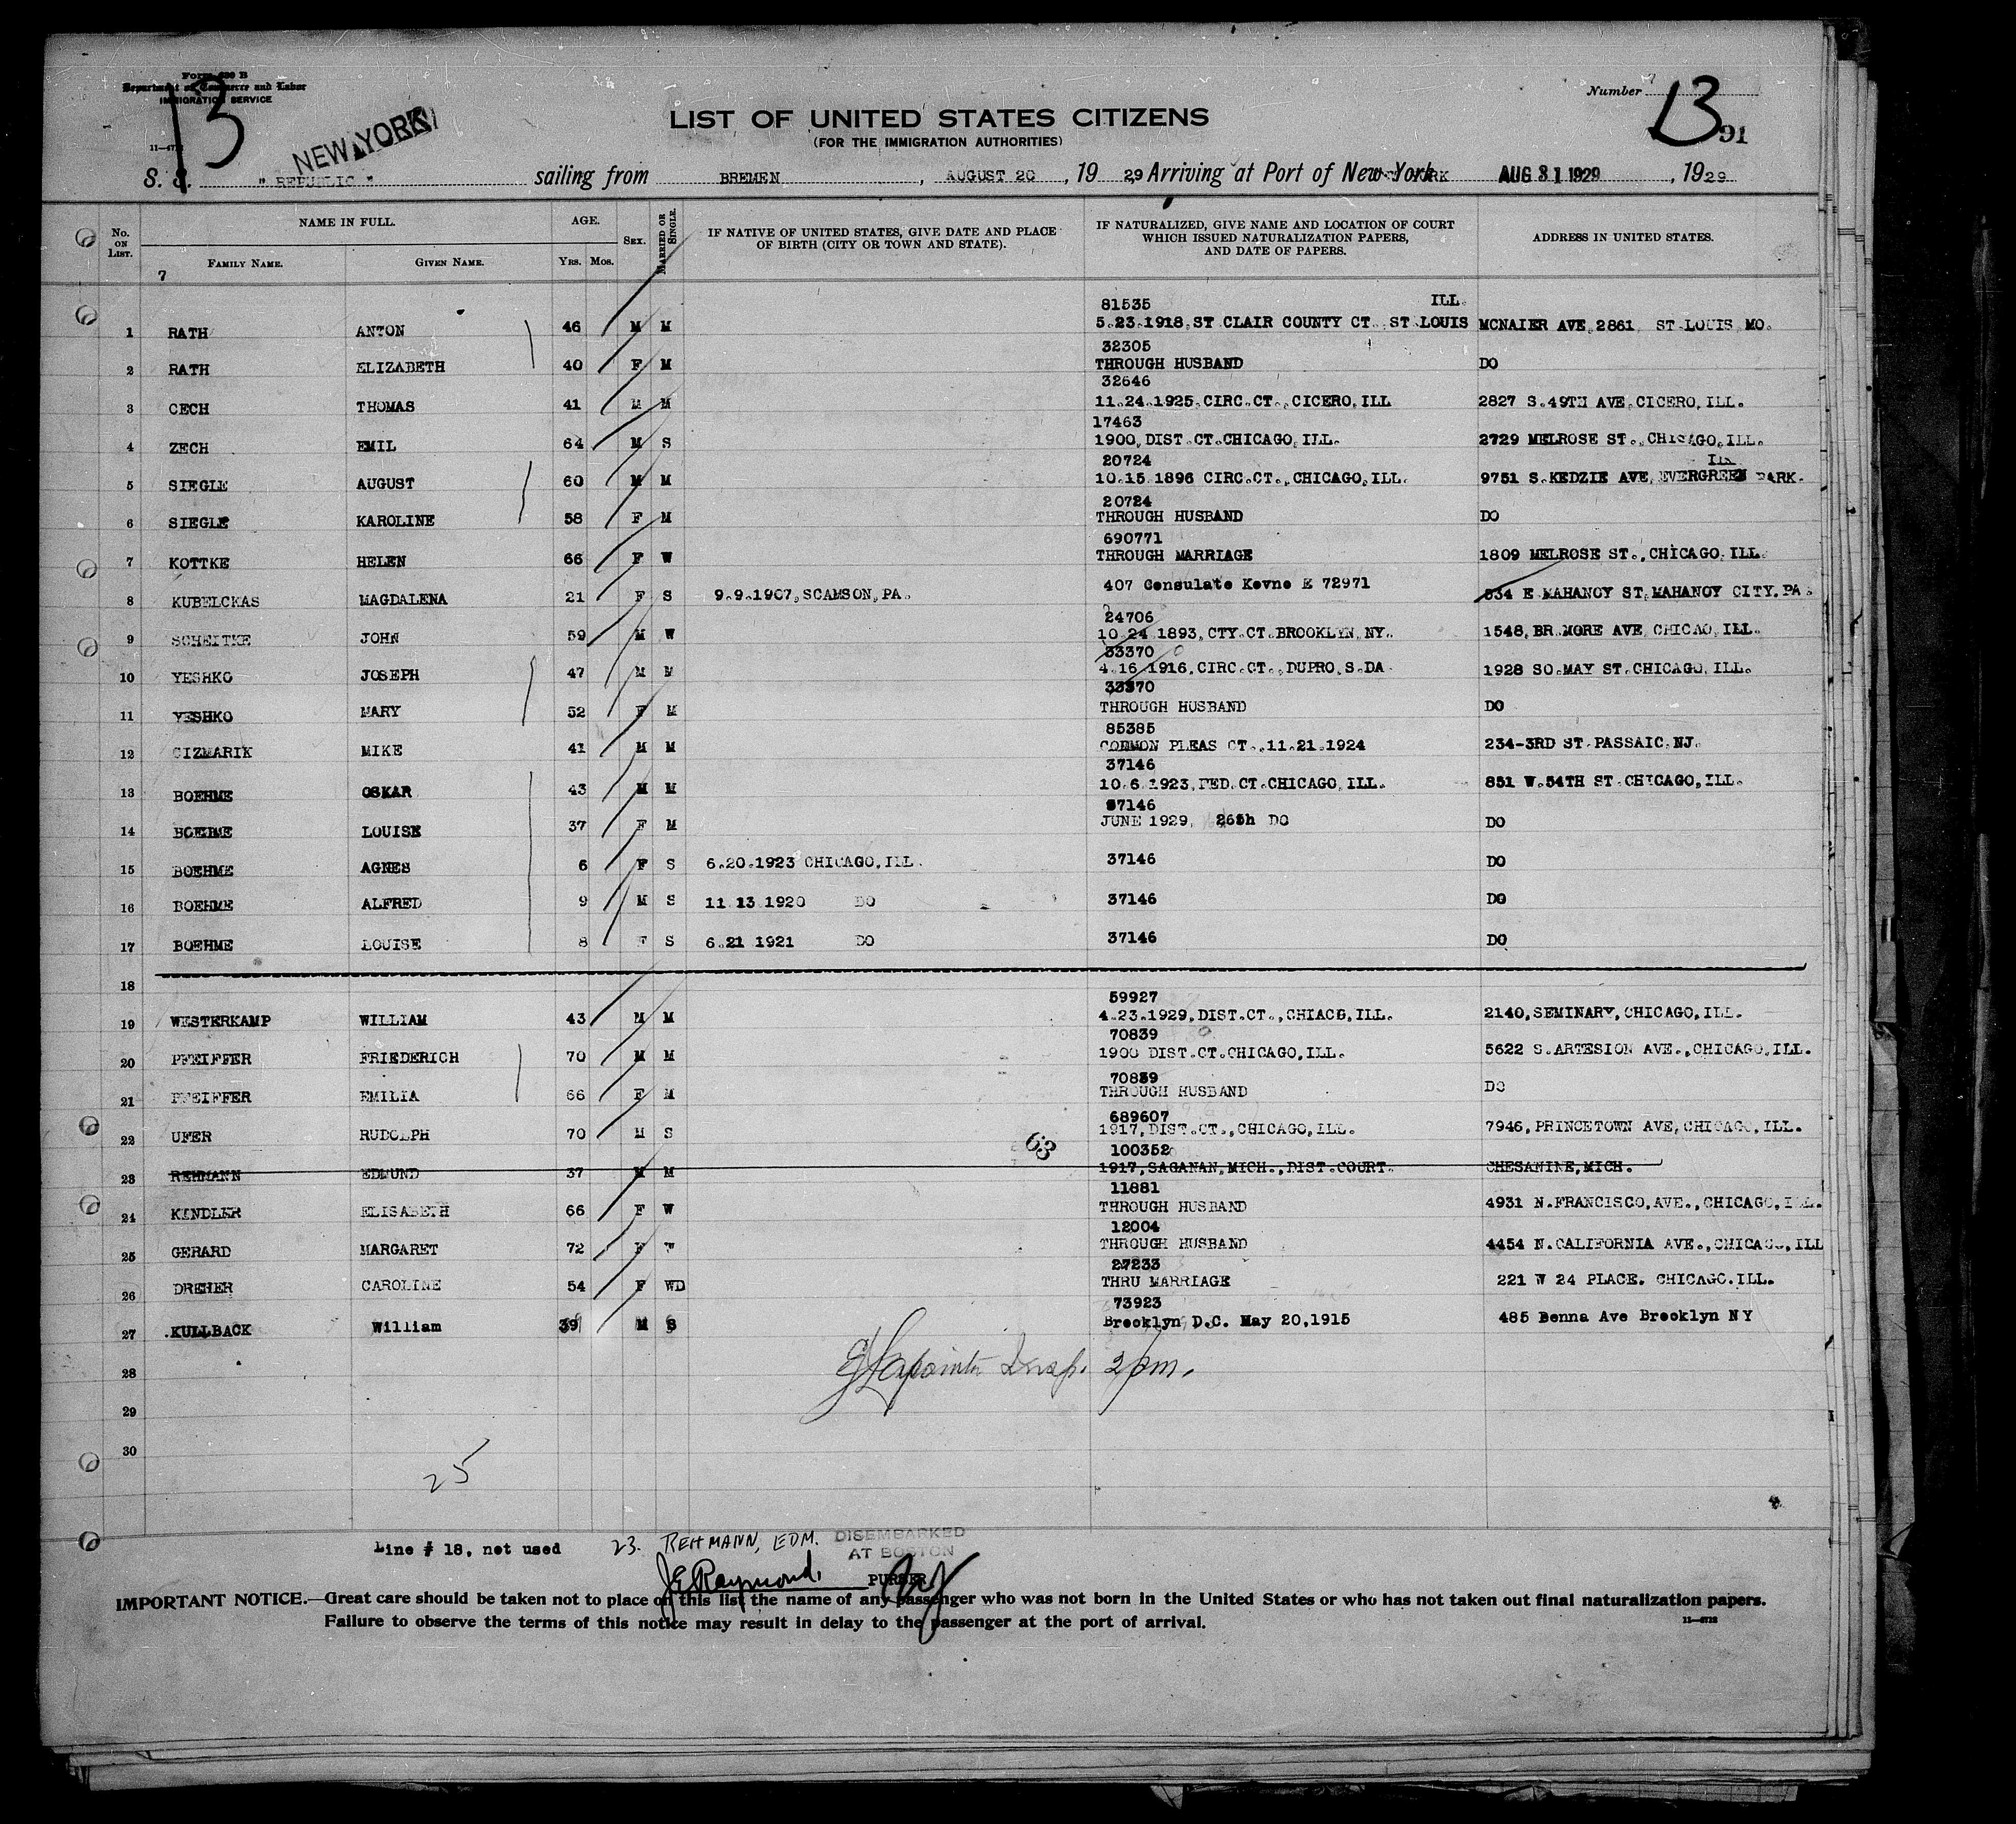 Form 630 B
Department of Commerce and Labor
IMMIGRATION SERVICE
13
NEW YORK
Number 13
91
LIST OF UNITED STATES CITIZENS
(FOR THE IMMIGRATION AUTHORITIES)
S. S. "REPUBLIC" sailing from BREMEN, AUGUST 20, 1929 Arriving at Port of New York AUG 31 1929, 1929
No. ON LIST. NAME IN FULL. FAMILY NAME. GIVEN NAME. AGE. YRS. MOS. SEX. MARRIED OR SINGLE. IF NATIVE OF UNITED STATES, GIVE DATE AND PLACE OF BIRTH (CITY OR TOWN AND STATE). IF NATURALIZED, GIVE NAME AND LOCATION OF COURT WHICH ISSUED NATURALIZATION PAPERS, AND DATE OF PAPERS. ADDRESS IN UNITED STATES.
7
81535 ILL.
1 RATH ANTON 46 M M 5.23.1918.ST CLAIR COUNTY CT. ST LOUIS MCNAIER AVE.2861 ST LOUIS MO.
32305
2 RATH ELIZABETH 40 F M THROUGH HUSBAND DO
32646
3 CECH THOMAS 41 M M 11.24.1925.CIRC.CT.,CICERO,ILL 2827 S.49TH AVE.CICERO,ILL.
17463
4 ZECH EMIL 64 M S 1900,DIST.CT.CHICAGO,ILL. 2729 MELROSE ST.,CHICAGO,ILL.
20724 ILL
5 SIEGLE AUGUST 60 M M 10.15.1896 CIRC.CT.,CHICAGO,ILL. 9751 S.KEDZIE AVE,EVERGREEN PARK.
20724
6 SIEGLE KAROLINE 58 F M THROUGH HUSBAND DO
690771
7 KOTTKE HELEN 66 F W THROUGH MARRIAGE 1809 MELROSE ST.,CHICAGO,ILL.
8 KUBELCKAS MAGDALENA 21 F S 9.9.1907,SCAMSON,PA. 407 Consulate Kovno E 72971 534 E MAHANOY ST.MAHANOY CITY.PA.
24706
9 SCHEITKE JOHN 59 M W 10.24 1893,CTY.CT.BROOKLYN,NY. 1548,BR.MORE AVE CHICAO,ILL.
33370
10 YESHKO JOSEPH 47 M M 4.16.1916,CIRC.CT.,DUPRO,S.DA 1928 SO.MAY ST.CHICAGO,ILL.
33370
11 YESHKO MARY 52 F M THROUGH HUSBAND DO
85385
12 CIZMARIK MIKE 41 M M COMMON PLEAS CT.,11.21.1924 234-3RD ST.PASSAIC.NJ.
37146
13 BOEHME OSKAR 43 M M 10.6.1923,FED.CT.CHICAGO,ILL. 851 W.54TH ST.CHICAGO,ILL.
37146
14 BOEHME LOUISE 37 F M JUNE 1929, 26th DO DO
15 BOEHME AGNES 6 F S 6.20.1923 CHICAGO,ILL. 37146 DO
16 BOEHME ALFRED 9 M S 11.13.1920 DO 37146 DO
17 BOEHME LOUISE 8 F S 6.21 1921 DO 37146 DO
18
59927
19 WESTERKAMP WILLIAM 43 M M 4.23.1929,DIST.CT.,CHIACG,ILL. 2140,SEMINARY,CHICAGO,ILL.
70839
20 PFEIFFER FRIEDERICH 70 M M 1900 DIST.CT.CHICAGO,ILL. 5622 S.ARTESION AVE.,CHICAGO,ILL.
70839
21 PFEIFFER EMILIA 66 F M THROUGH HUSBAND DO
689607
22 UFER RUDOLPH 70 M S 1917,DIST.CT.,CHICAGO,ILL. 7946,PRINCETOWN AVE,CHICAGO,ILL.
63
100352
23 REHMANN EDMUND 37 M M 1917,SAGANAN,MICH.,DIST.COURT. CHESANINE,MICH.
11881
24 KINDLER ELISABETH 66 F W THROUGH HUSBAND 4931 N.FRANCISCO,AVE.,CHICAGO,ILL.
12004
25 GERARD MARGARET 72 F W THROUGH HUSBAND 4454 N.CALIFORNIA AVE.,CHICAGO,ILL
27233
26 DREHER CAROLINE 54 F WD THRU MARRIAGE 221 W 24 PLACE. CHICAGO.ILL.
73923
27 KULLBACK William 39 M S Brooklyn D.C. May 20,1915 485 Denna Ave Brooklyn NY
28 Insp. 2 pm.
29
30
25
Line # 18, not used 23. REHMANN, EDM. DISEMBARKED AT BOSTON
J E Raymond, PURSER
IMPORTANT NOTICE.—Great care should be taken not to place on this list the name of any passenger who was not born in the United States or who has not taken out final naturalization papers.
Failure to observe the terms of this notice may result in delay to the passenger at the port of arrival.